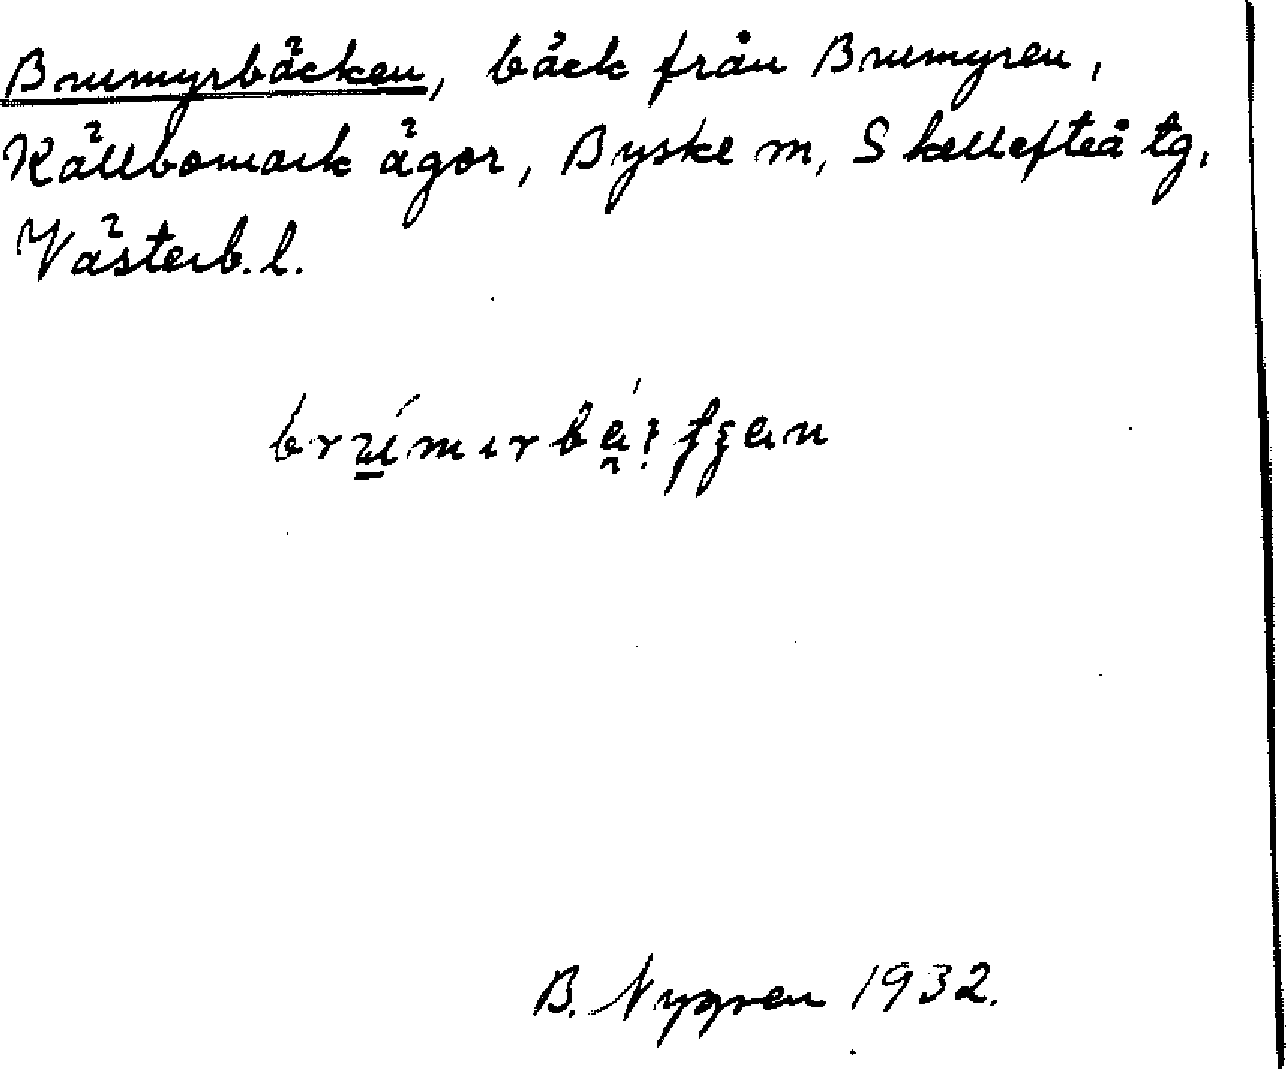 Brumyrbäcken, bäck från Brumyren,
Källbomark ägor, Byske m, Skellefteå tg.
Västerb. l.
B. Nygren 1932.